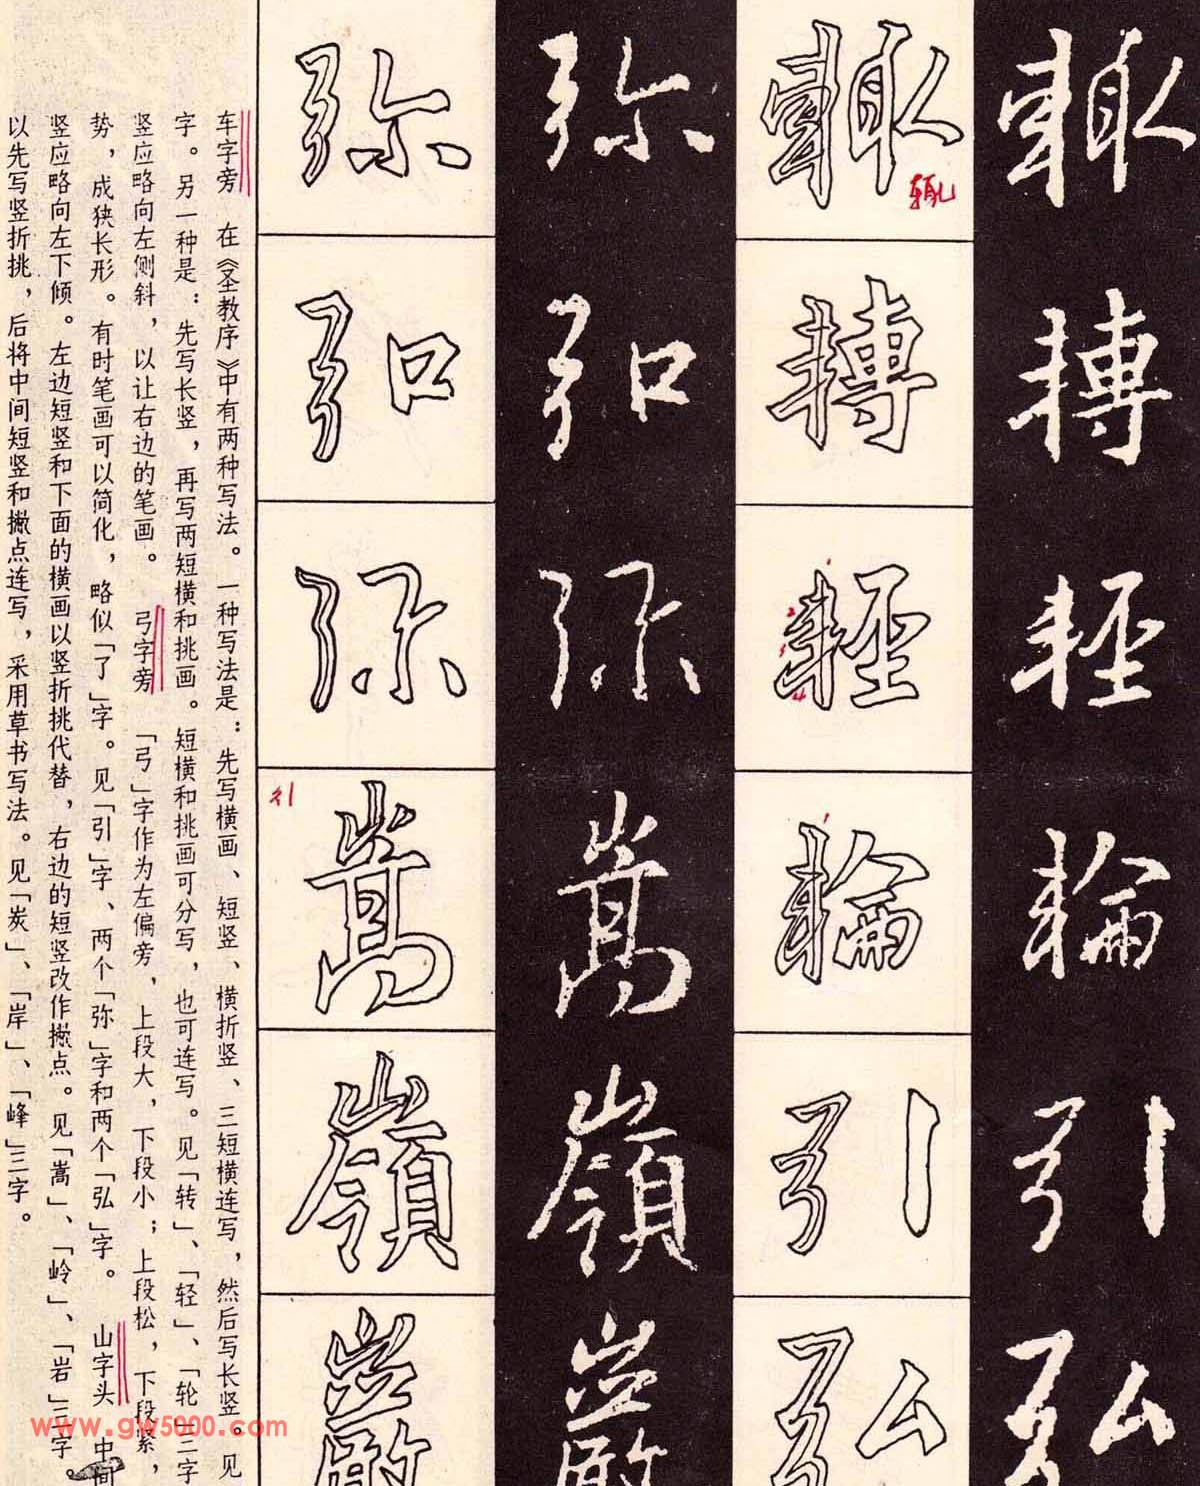 輙轉輕輪引弘
輙轉輕輪引弘
辄
弥弘弥嵩嶺巖
弥弘弥嵩嶺巖
车字旁 在《圣教序》中有两种写法。一种写法是：先写横画、短竖、横折竖、三短横连写，然后写长竖。见
字。另一种是：先写长竖，再写两短横和挑画。短横和挑画可分写，也可连写。见「转」、「轻」、「轮」三字
竖应略向左侧斜，以让右边的笔画。 弓字旁 「弓」字作为左偏旁，上段大，下段小；上段松，下段紧，
势，成狭长形。有时笔画可以简化，略似「了」字。见「引」字、两个「弥」字和两个「弘」字。 山字头 中间
竖应略向左下倾。左边短竖和下面的横画以竖折挑代替，右边的短竖改作撇点。见「嵩」、「岭」、「岩」三字。
以先写竖折挑，后将中间短竖和撇点连写，采用草书写法。见「炭」、「岸」、「峰」三字。
www.gw5000.com